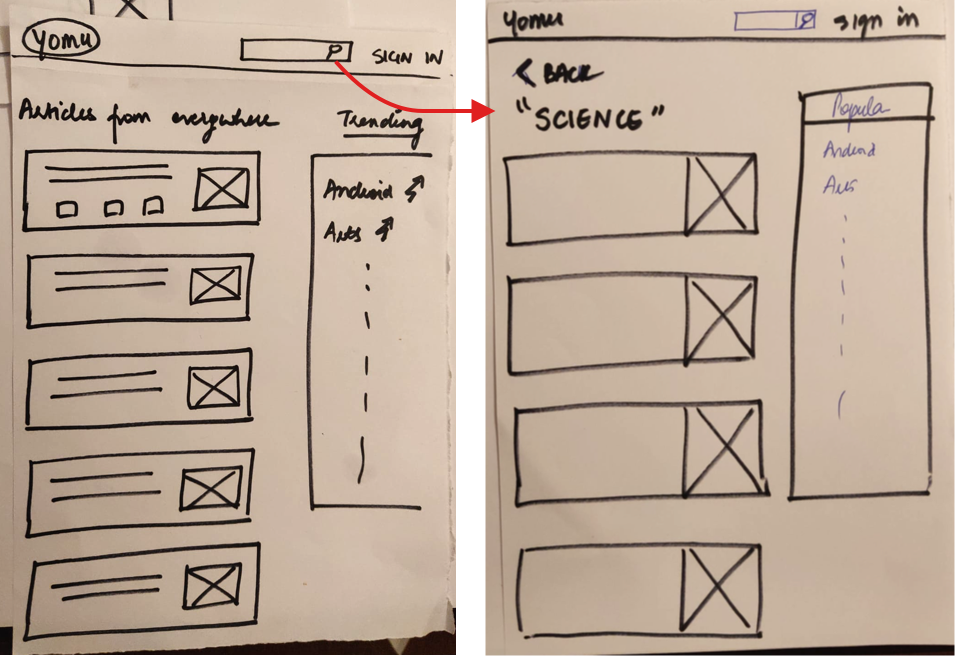 Yomu
SIGN IN
Articles from everywhere
Trending
Android
Arts
Yomu
sign in
< BACK
"SCIENCE"
Popular
Android
Arts